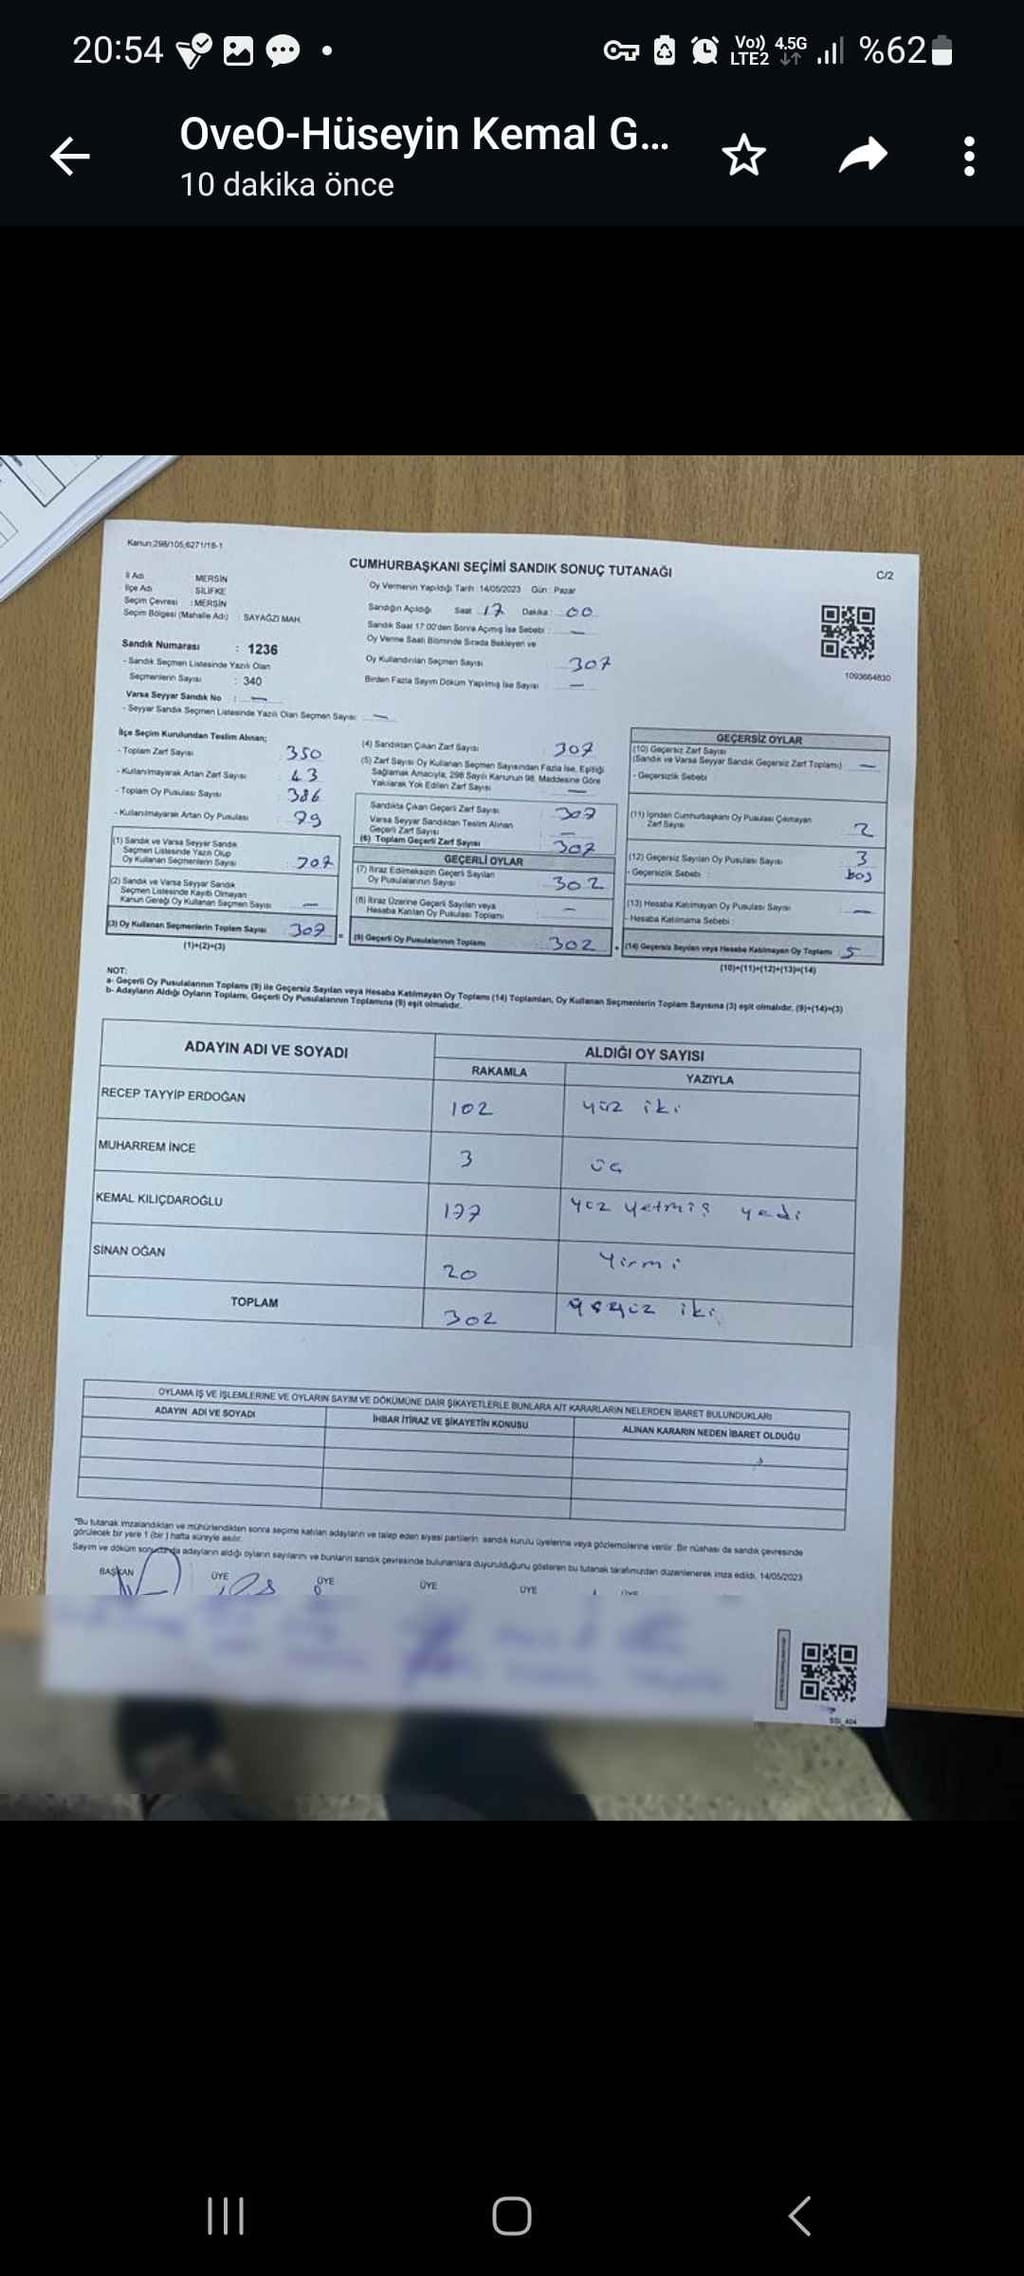 20:54
Vo)) LTE2 4.5G %62
OveO-Hüseyin Kemal G...
10 dakika önce
Kanun:298/105,6271/18-1
CUMHURBAŞKANI SEÇİMİ SANDIK SONUÇ TUTANAĞI
C/2
İl Adı MERSİN
İlçe Adı SİLİFKE
Seçim Çevresi : MERSİN
Seçim Bölgesi (Mahalle Adı) SAYAĞZI MAH.
Oy Vermenin Yapıldığı Tarih 14/05/2023 Gün : Pazar
Sandığın Açıldığı Saat 17 Dakika : 00
Sandık Saat 17:00'den Sonra Açılmış İse Sebebi : —
Oy Verme Saati Bitiminde Sırada Bekleyen ve
Oy Kullandırılan Seçmen Sayısı 307
Birden Fazla Sayım Döküm Yapılmış İse Sayısı —
1093664830
Sandık Numarası : 1236
- Sandık Seçmen Listesinde Yazılı Olan
Seçmenlerin Sayısı : 340
Varsa Seyyar Sandık No : —
- Seyyar Sandık Seçmen Listesinde Yazılı Olan Seçmen Sayısı: —
İlçe Seçim Kurulundan Teslim Alınan;
- Toplam Zarf Sayısı 350
- Kullanılmayarak Artan Zarf Sayısı 43
- Toplam Oy Pusulası Sayısı 386
- Kullanılmayarak Artan Oy Pusulası 79
(1) Sandık ve Varsa Seyyar Sandık
Seçmen Listesinde Yazılı Olup
Oy Kullanan Seçmenlerin Sayısı 707
(2) Sandık ve Varsa Seyyar Sandık
Seçmen Listesinde Kayıtlı Olmayan
Kanun Gereği Oy Kullanan Seçmen Sayısı —
(3) Oy Kullanan Seçmenlerin Toplam Sayısı 307
(1)+(2)=(3)
(4) Sandıktan Çıkan Zarf Sayısı 307
(5) Zarf Sayısı Oy Kullanan Seçmen Sayısından Fazla İse, Eşitliği
Sağlamak Amacıyla, 298 Sayılı Kanunun 98. Maddesine Göre
Yakılarak Yok Edilen Zarf Sayısı —
Sandıkta Çıkan Geçerli Zarf Sayısı 307
Varsa Seyyar Sandıktan Teslim Alınan
Geçerli Zarf Sayısı —
(6) Toplam Geçerli Zarf Sayısı 307
GEÇERLİ OYLAR
(7) İtiraz Edilmeksizin Geçerli Sayılan
Oy Pusulalarının Sayısı 302
(8) İtiraz Üzerine Geçerli Sayılan veya
Hesaba Katılan Oy Pusulası Toplamı —
(9) Geçerli Oy Pusulalarının Toplamı 302
GEÇERSİZ OYLAR
(10) Geçersiz Zarf Sayısı
(Sandık ve Varsa Seyyar Sandık Geçersiz Zarf Toplamı) —
- Geçersizlik Sebebi
(11) İçinden Cumhurbaşkanı Oy Pusulası Çıkmayan
Zarf Sayısı 2
(12) Geçersiz Sayılan Oy Pusulası Sayısı 3
- Geçersizlik Sebebi boş
(13) Hesaba Katılmayan Oy Pusulası Sayısı —
- Hesaba Katılmama Sebebi :
(14) Geçersiz Sayılan veya Hesaba Katılmayan Oy Toplamı 5
(10)+(11)+(12)+(13)=(14)
NOT:
a- Geçerli Oy Pusulalarının Toplamı (9) ile Geçersiz Sayılan veya Hesaba Katılmayan Oy Toplamı (14) Toplamları, Oy Kullanan Seçmenlerin Toplam Sayısına (3) eşit olmalıdır. (9)+(14)=(3)
b- Adayların Aldığı Oyların Toplamı, Geçerli Oy Pusulalarının Toplamına (9) eşit olmalıdır.
ADAYIN ADI VE SOYADI ALDIĞI OY SAYISI
RAKAMLA YAZIYLA
RECEP TAYYİP ERDOĞAN 102 yüz iki
MUHARREM İNCE 3 üç
KEMAL KILIÇDAROĞLU 177 yüz yetmiş yedi
SİNAN OĞAN 20 Yirmi
TOPLAM 302 üçyüz iki
OYLAMA İŞ VE İŞLEMLERİNE VE OYLARIN SAYIM VE DÖKÜMÜNE DAİR ŞİKAYETLERLE BUNLARA AİT KARARLARIN NELERDEN İBARET BULUNDUKLARI
ADAYIN ADI VE SOYADI İHBAR İTİRAZ VE ŞİKAYETİN KONUSU ALINAN KARARIN NEDEN İBARET OLDUĞU
"Bu tutanak imzalandıktan ve mühürlendikten sonra seçime katılan adayların ve talep eden siyasi partilerin sandık kurulu üyelerine veya gözlemcilerine verilir. Bir nüshası da sandık çevresinde
görülecek bir yere 1 (bir) hafta süreyle asılır.
Sayım ve döküm sonucunda adayların aldığı oyların sayılarını ve bunların sandık çevresinde bulunanlara duyurulduğunu gösteren bu tutanak tarafımızdan düzenlenerek imza edildi. 14/05/2023
BAŞKAN ÜYE ÜYE ÜYE ÜYE ÜYE